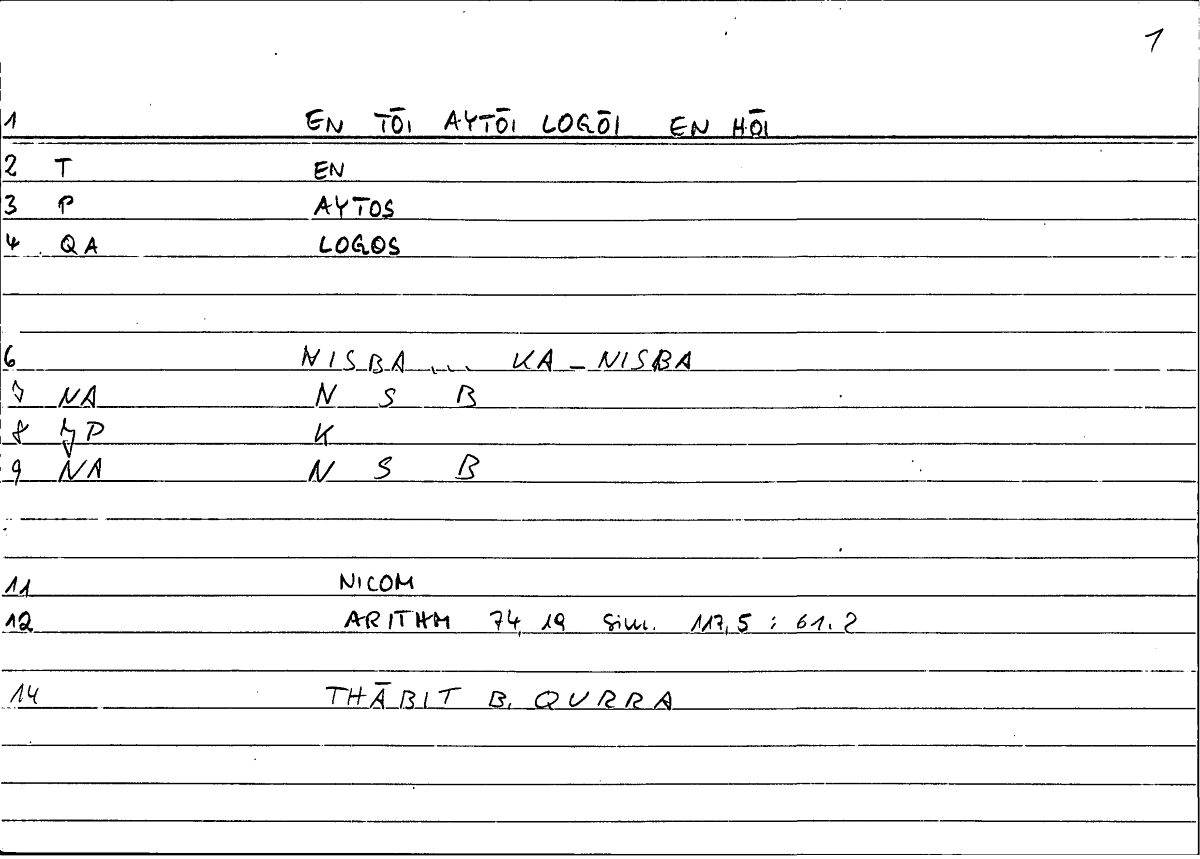 1
1 EN TŌI AYTŌI LOGŌI EN HŌI
2 T EN
3 P AYTOS
4 QA LOGOS
6 NISBA ... KA-NISBA
7 NA N S B
8 P K
9 NA N S B
11 NICOM
12 ARITHM 74,19 sim. 117,5 ; 61.2
14 THĀBIT B. QURRA